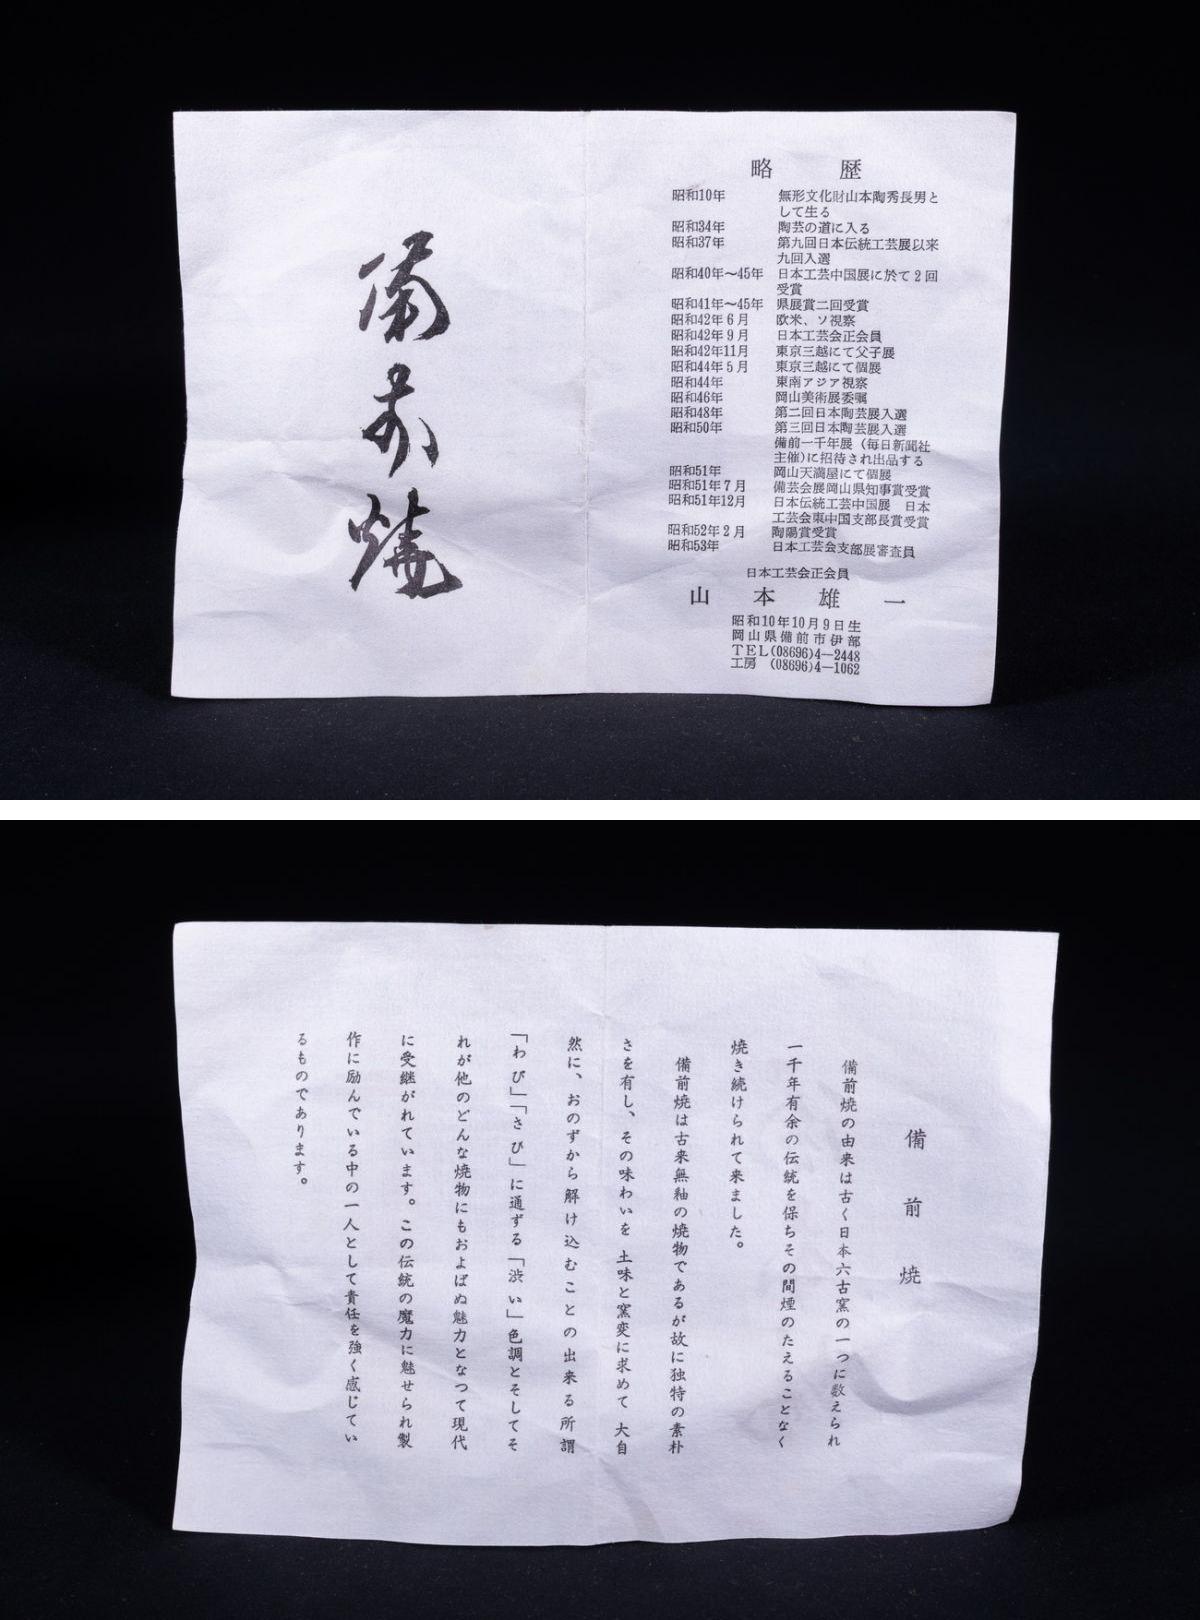 備前焼
略　歴
昭和10年　無形文化財山本陶秀長男と
して生る
昭和34年　陶芸の道に入る
昭和37年　第九回日本伝統工芸展以来
九回入選
昭和40年〜45年　日本工芸中国展に於て2回
受賞
昭和41年〜45年　県展賞二回受賞
昭和42年6月　欧米、ソ視察
昭和42年9月　日本工芸会正会員
昭和42年11月　東京三越にて父子展
昭和44年5月　東京三越にて個展
昭和44年　東南アジア視察
昭和46年　岡山美術展委嘱
昭和48年　第二回日本陶芸展入選
昭和50年　第三回日本陶芸展入選
備前一千年展（毎日新聞社
主催)に招待され出品する
昭和51年　岡山天満屋にて個展
昭和51年7月　備芸会展岡山県知事賞受賞
昭和51年12月　日本伝統工芸中国展　日本
工芸会東中国支部長賞受賞
昭和52年2月　陶陽賞受賞
昭和53年　日本工芸会支部展審査員
日本工芸会正会員
山本雄一
昭和10年10月9日生
岡山県備前市伊部
TEL(08696)4―2448
工房　(08696)4―1062
備前焼
備前焼の由来は古く日本六古窯の一つに数えられ
一千年有余の伝統を保ちその間煙のたえることなく
焼き続けられて来ました。
備前焼は古来無釉の焼物であるが故に独特の素朴
さを有し、その味わいを 土味と窯変に求めて 大自
然に、おのずから解け込むことの出来る所謂
「わび」「さび」に通ずる「渋い」色調とそしてそ
れが他のどんな焼物にもおよばぬ魅力となつて現代
に受継がれています。この伝統の魔力に魅せられ製
作に励んでいる中の一人として責任を強く感じてい
るものであります。